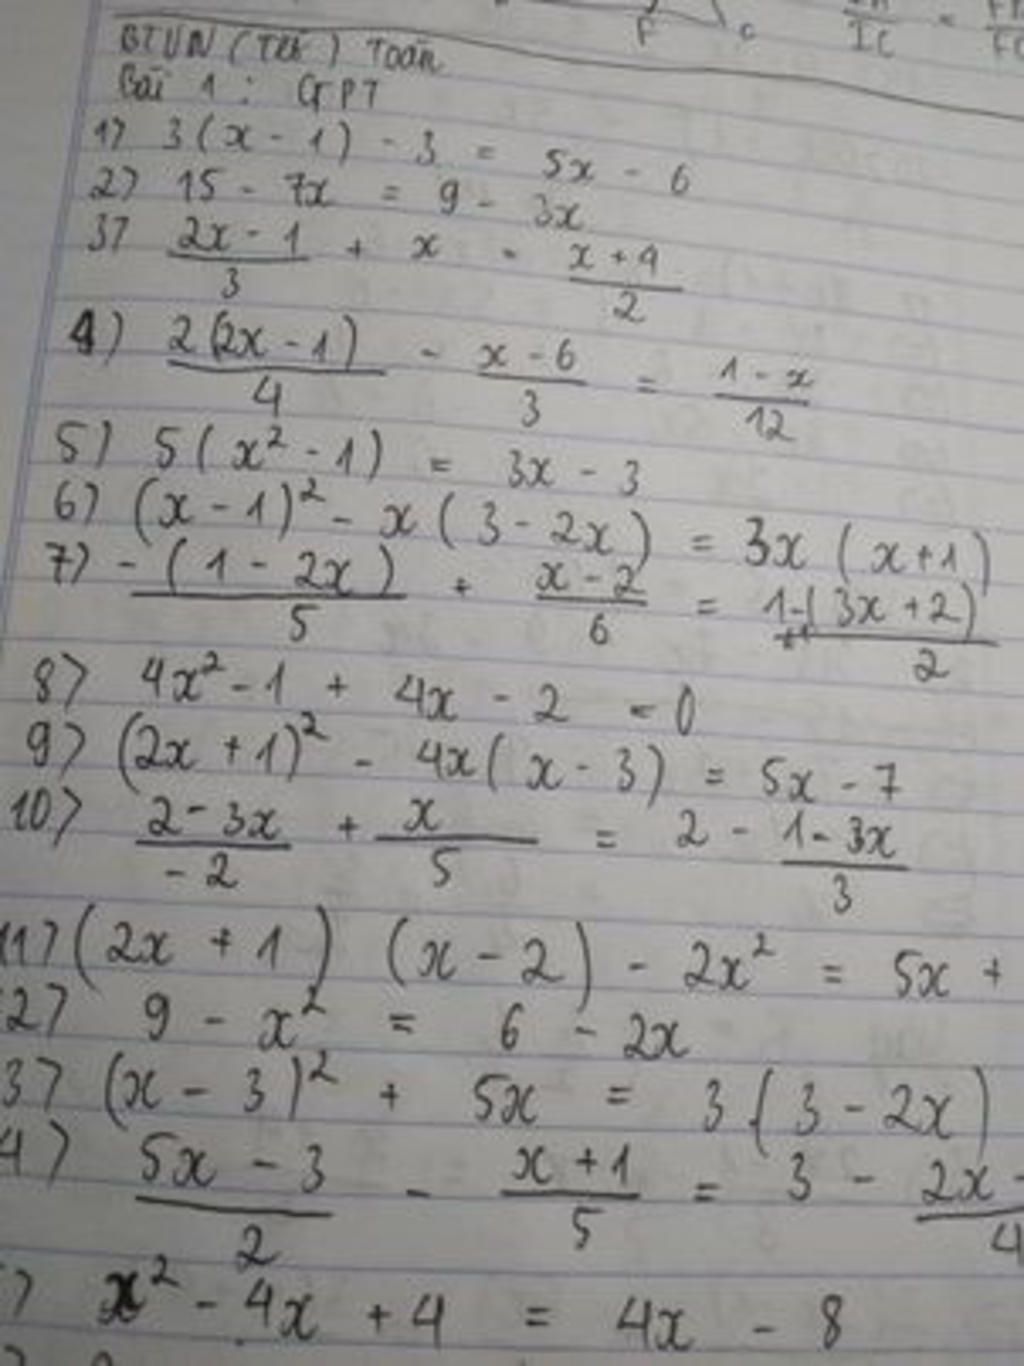 BTVN (Tết) Toán
Bài 1: GPT
1) 3(x - 1) - 3 = 5x - 6
2) 15 - 7x = 9 - 3x
3) (2x - 1)/3 + x = (x + 4)/2
4) 2(2x - 1)/4 - (x - 6)/3 = (1 - x)/12
5) 5(x² - 1) = 3x - 3
6) (x - 1)² - x(3 - 2x) = 3x(x + 1)
7) -(1 - 2x)/5 + (x - 2)/6 = 1-(3x + 2)/2
8) 4x² - 1 + 4x - 2 = 0
9) (2x + 1)² - 4x(x - 3) = 5x - 7
10) (2 - 3x)/-2 + x/5 = 2 - (1 - 3x)/3
11) (2x + 1)(x - 2) - 2x² = 5x +
2) 9 - x² = 6 - 2x
3) (x - 3)² + 5x = 3(3 - 2x)
4) (5x - 3)/2 - (x + 1)/5 = 3 - 2x -/4
) x² - 4x + 4 = 4x - 8